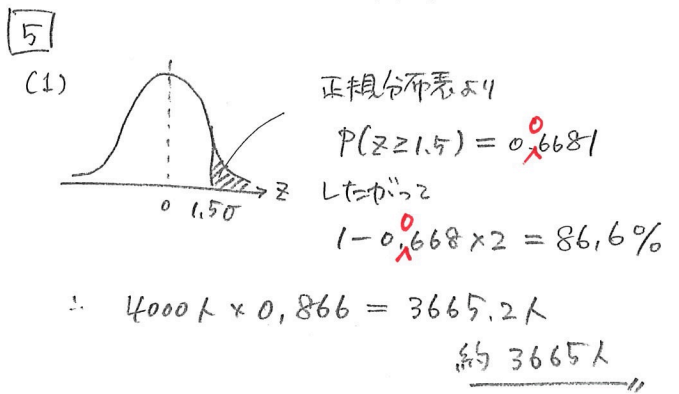 5
(1)
正規分布表より
P(Z≧1.5) = 0.06681
0 1.5σ Z
したがって
1-0.0668×2 = 86.6%
∴ 4000人×0.866 = 3665.2人
約 3665人